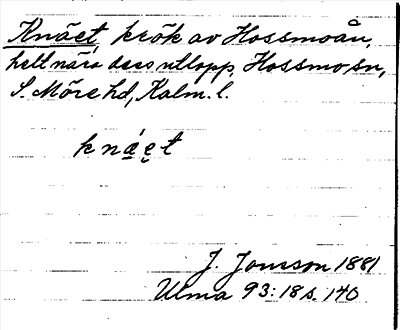 Knäet, krök av Hossmoån,
helt nära dess utlopp, Hossmo sn,
S. Möre hd, Kalm. l.
knáet
J. Jonsson 1881
Ulma 93:18 s. 140